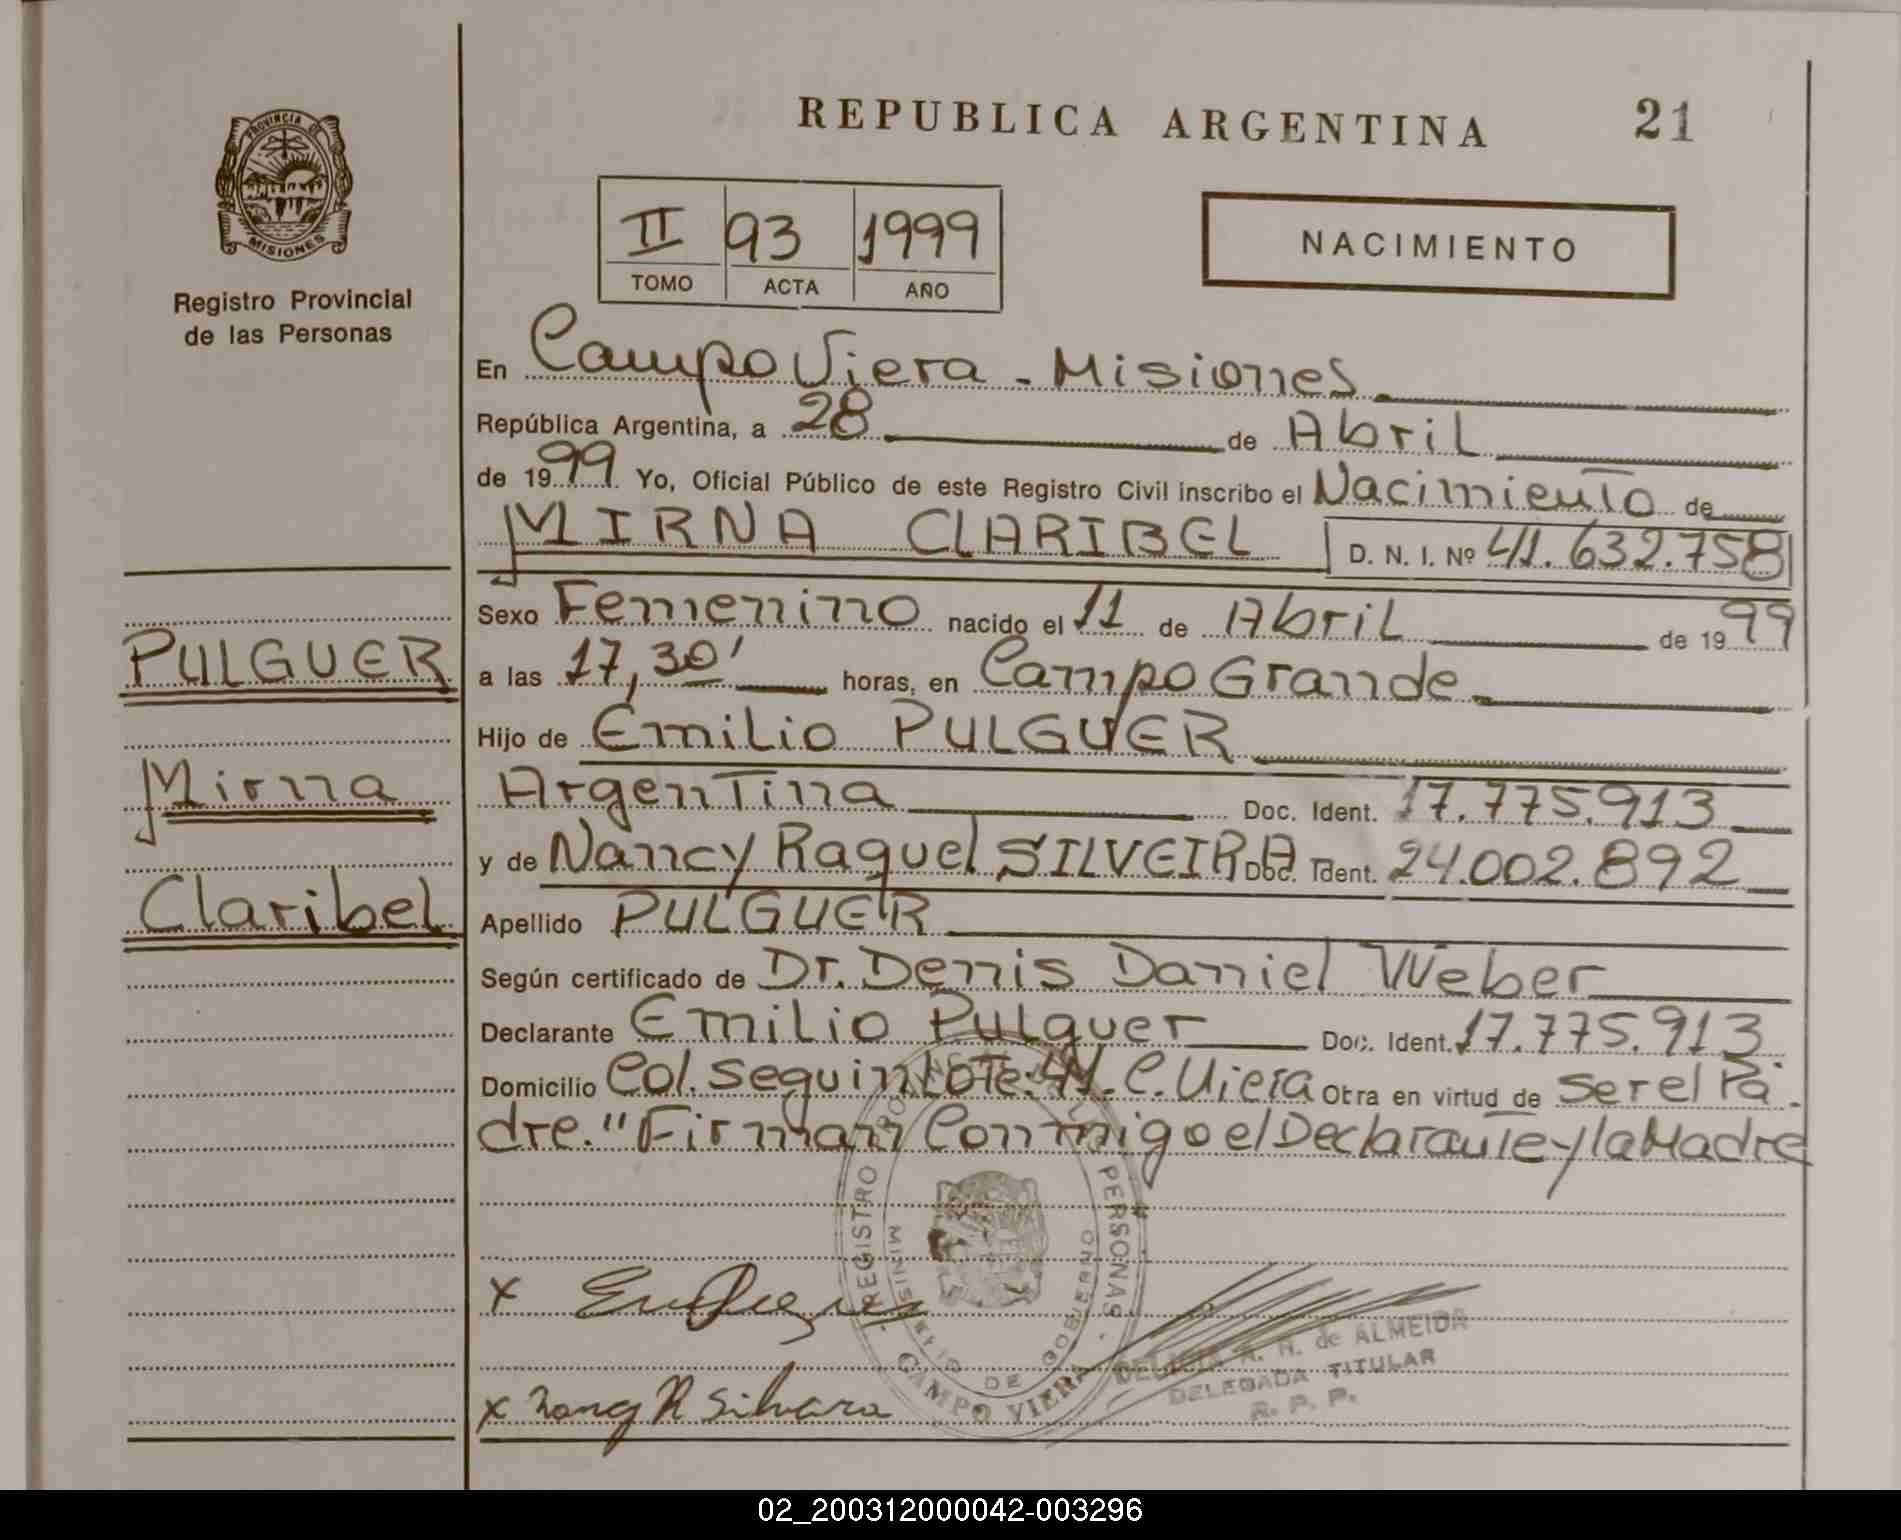 REPUBLICA ARGENTINA 21
PROVINCIA DE
MISIONES
Registro Provincial
de las Personas
II 93 1999
TOMO ACTA AÑO
NACIMIENTO
En Campo Viera - Misiones
República Argentina, a 28 de Abril
de 1999 Yo, Oficial Público de este Registro Civil inscribo el Nacimiento de
MIRNA CLARIBEL D. N. I. Nº 41.632.758
Sexo Femenino nacido el 11 de Abril de 1999
a las 17,30' horas, en Campo Grande
Hijo de Emilio PULGUER
Argentina Doc. Ident. 17.775.913
y de Nancy Raquel SILVEIRA Doc. Ident. 24.002.892
Apellido PULGUER
Según certificado de Dr. Denis Daniel Weber
Declarante Emilio Pulguer Doc. Ident. 17.775.913
Domicilio Col. Seguin Lote: 41. C. Viera Obra en virtud de ser el Pa
dre." Firman Conmigo el Declarante y la Madre
PULGUER
Mirna
Claribel
REGISTRO PERSONAS
MINISTERIO DE GOBIERNO
CAMPO VIERA
x
x Nancy R Silvera
A. H. de ALMEIDA
DELEGADA TITULAR
R. P. P.
02_200312000042-003296